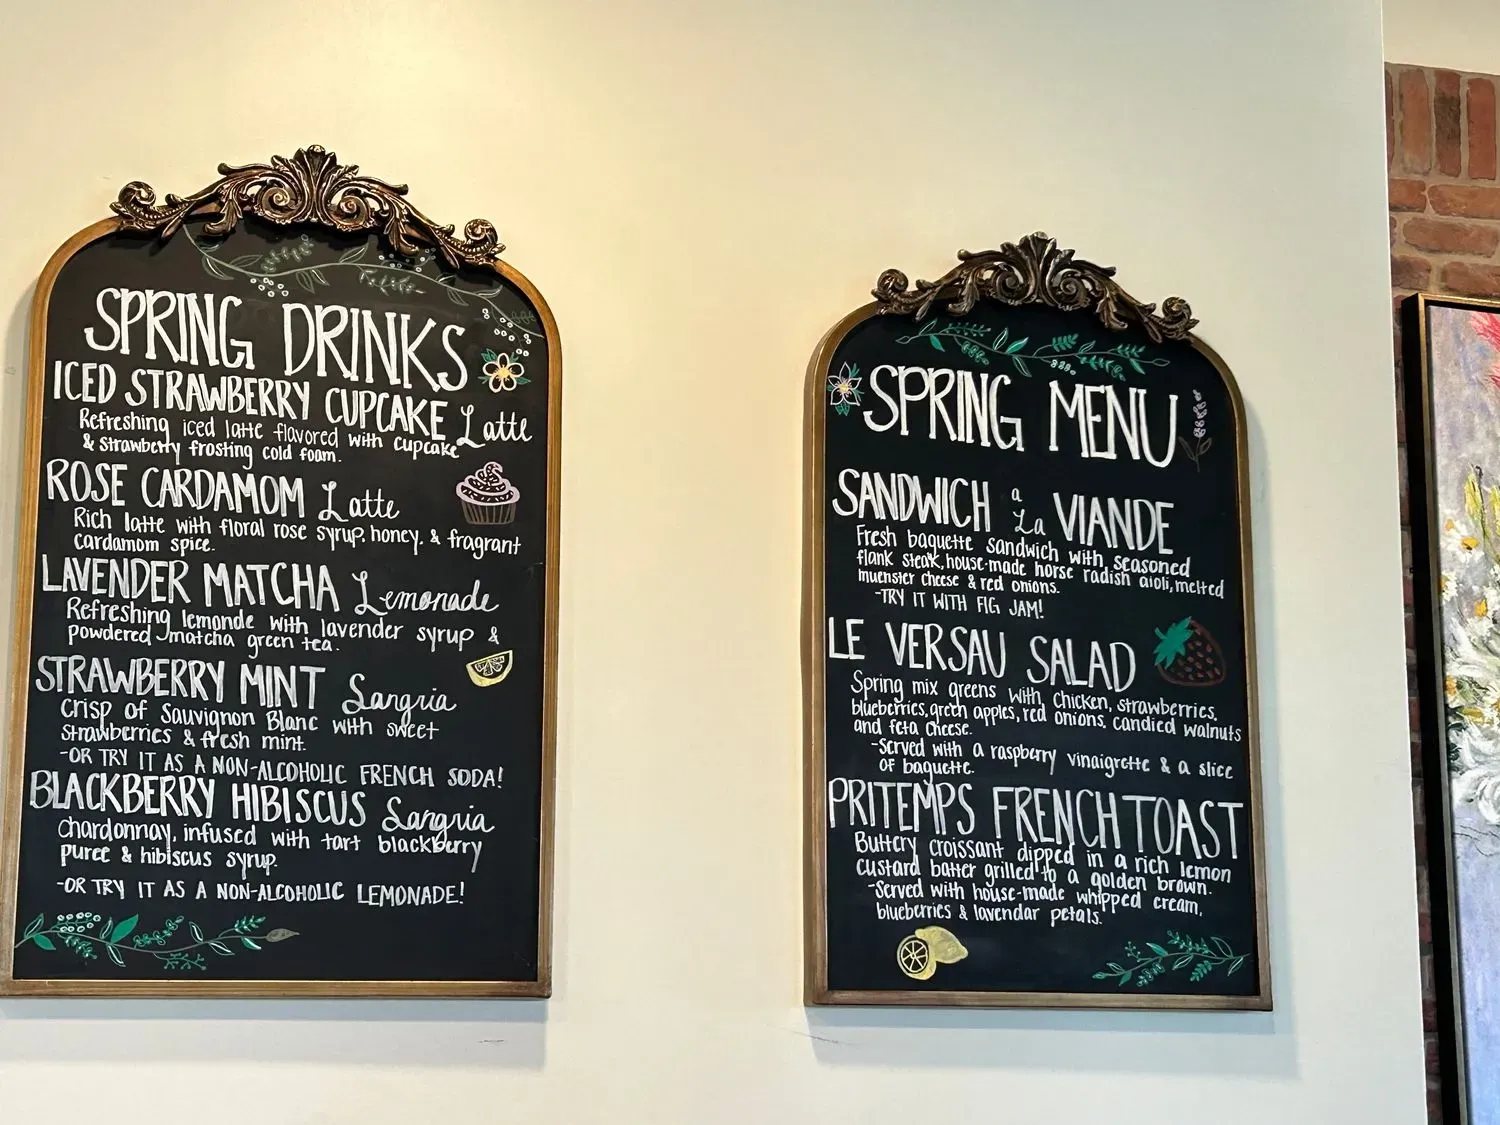 SPRING DRINKS
ICED STRAWBERRY CUPCAKE Latte
Refreshing iced latte flavored with cupcake
& strawberry frosting cold foam.
ROSE CARDAMOM Latte
Rich latte with floral rose syrup, honey, & fragrant
cardamom spice.
LAVENDER MATCHA Lemonade
Refreshing lemonde with lavender syrup &
powdered matcha green tea.
STRAWBERRY MINT Sangria
Crisp of Sauvignon Blanc with sweet
strawberries & fresh mint.
-OR TRY IT AS A NON-ALCOHOLIC FRENCH SODA!
BLACKBERRY HIBISCUS Sangria
Chardonnay, infused with tart blackberry
puree & hibiscus syrup.
-OR TRY IT AS A NON-ALCOHOLIC LEMONADE!
SPRING MENU
SANDWICH a La VIANDE
Fresh baguette sandwich with seasoned
flank steak, house-made horse radish aioli, melted
muenster cheese & red onions.
-TRY IT WITH FIG JAM!
LE VERSAU SALAD
Spring mix greens with chicken, strawberries,
blueberries, green apples, red onions, candied walnuts
and feta cheese.
-Served with a raspberry vinaigrette & a slice
of baguette.
PRITEMPS FRENCH TOAST
Buttery croissant dipped in a rich lemon
custard batter grilled to a golden brown.
-Served with house-made whipped cream,
blueberries & lavendar petals.